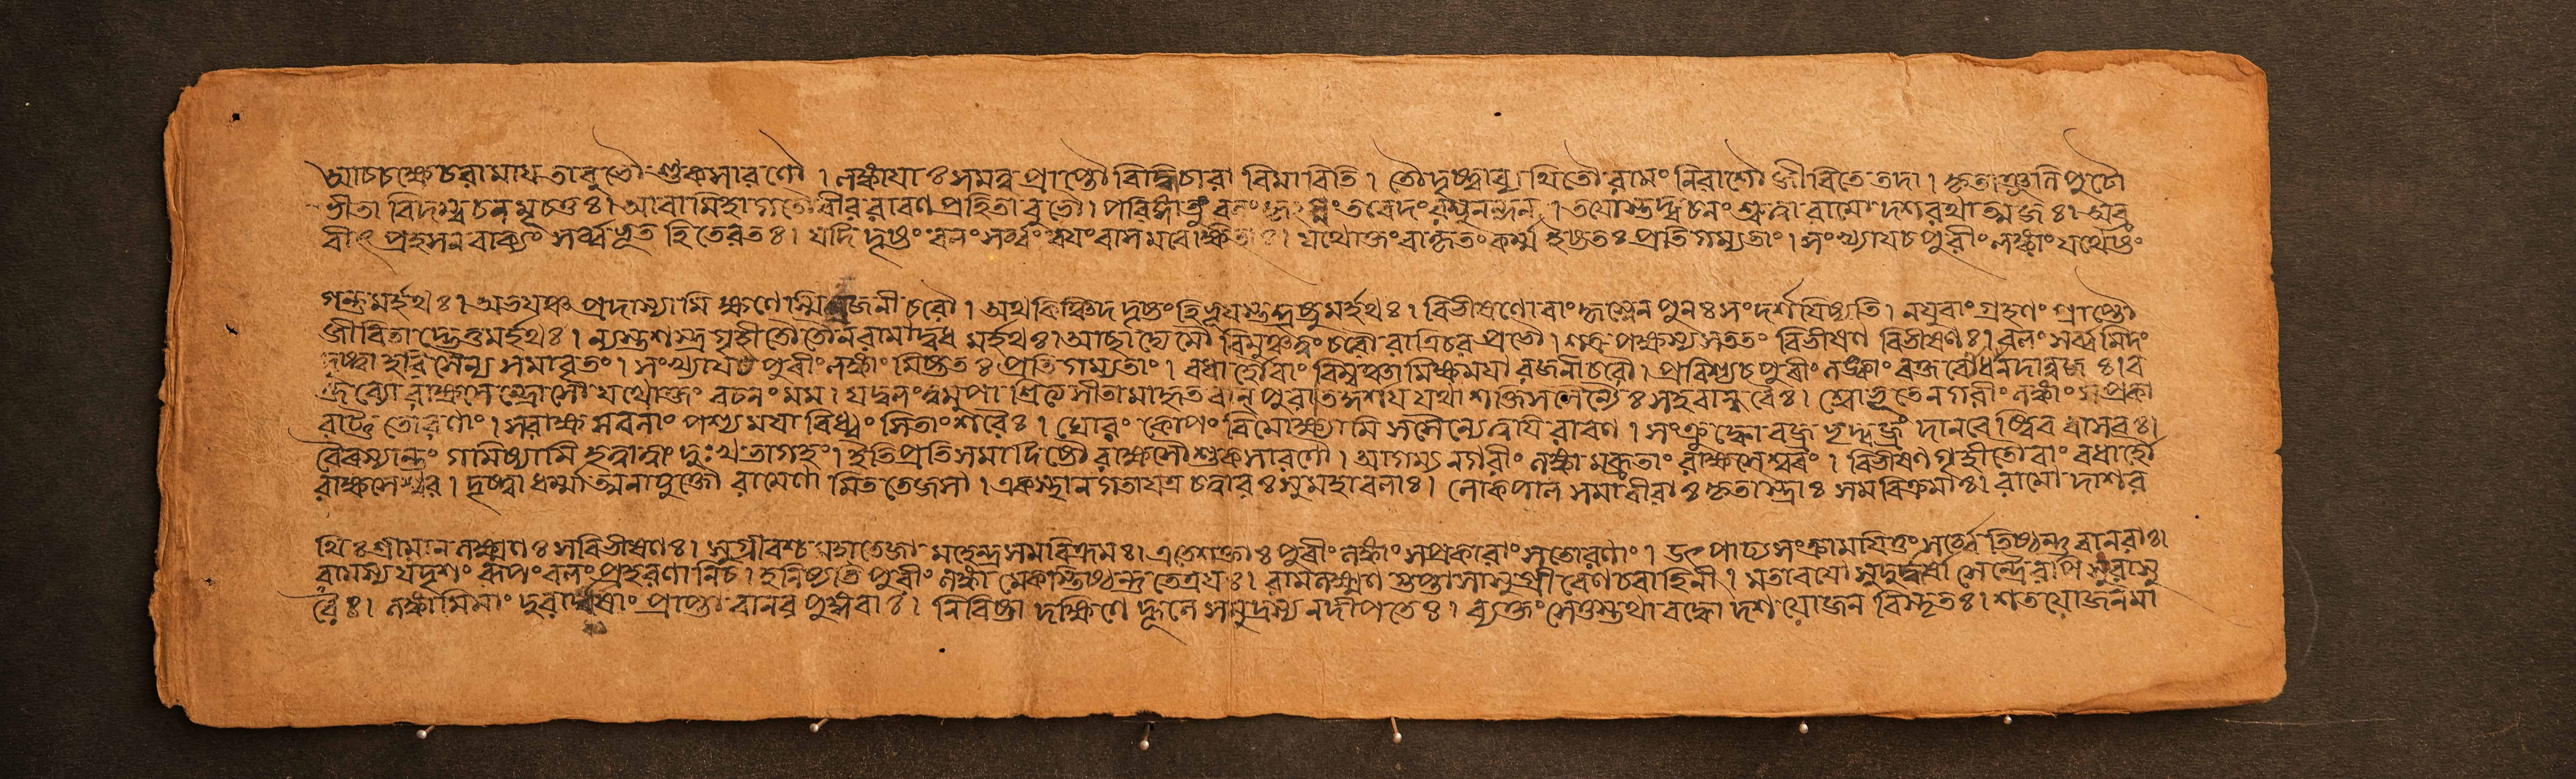 আচচক্ষে চ রামায তাবুভৌ শুকসারণৌ । লঙ্কাযাঃ সমনু প্রাপ্তৌ বিদ্ধি চারা বিমাবিতি । তৌ দৃষ্ট্বা ব্যথিতৌ রামং নিরাশৌ জীবিতে তদা । কৃতাঞ্জলিপুটৌ
ভীতা বিদম্বচনমূচতুঃ । আবামিহাগতৌ বীর রাবণপ্রহিতাবুভৌ । পরিজ্ঞাতুং বলং কৃৎস্নং তবেদং রঘুনন্দন । তযোস্তদ্বচনং শ্রুত্বা রামো দশরথাত্মজঃ । অব্র
বীৎ প্রহসন বাক্যং সর্ব্বভূতহিতেরতঃ । যদি দৃষ্টং বলং সর্ব্বং বযং বাসমবেক্ষিতাঃ । যথোক্তং বাকৃতং কর্ম্ম ইষ্টতঃ প্রতিগম্যতাং । সংখ্যায চ পুরীং লঙ্কাং যথেষ্টং
গন্তুমর্হথঃ । অভযঞ্চ প্রদাস্যামি ক্ষণেস্মি রজনীচরৌ । অথ কিঞ্চিদদৃষ্টং হি ভূযস্তদ্দ্রষ্টুমর্হথঃ । বিভীষণো বাং কৃৎস্নেন পুনঃ সংদর্শযিষ্যতি । ন যুবাং গ্রহণং প্রাপ্তৌ
জীবিতাদ্ভেত্তুমর্হথঃ । ন্যস্তশস্ত্র গৃহীতৌ তৌ ন রামাদ্বধমর্হথঃ । আছাদ্যেমৌ বিমুঞ্চত্বং চরৌ রাত্রিচরপ্রভৌ । শত্রুপক্ষস্য সততং বিভীষণ বিভীষণঃ । বলং সর্ব্বমিদং
দৃষ্ট্বা হরিসৈন্যসমাবৃতং । সংখ্যায চ পুরীং লঙ্কাং মিষ্টতঃ প্রতিগম্যতাং । বধার্হৌ বাং বিমুঞ্চামি ক্ষময়া রজনীচরৌ । প্রবিশ্য চ পুরীং লঙ্কাং বক্তব্যো ধনদানুজঃ । ব
ক্তব্যো রাক্ষসেন্দ্রোসৌ যথোক্তং বচনং মম । যদ্বলং ত্বমুপাশ্রিত্য সীতামাহৃতবান্ পুরা তদ্দর্শয যথাশক্তি সসৈন্যৈঃ সহ বান্ধবৈঃ । শ্বোভূতে নগরীং লঙ্কাং সপ্রকা
রাট্ট তোরণাং । সরাক্ষসবলাং পশ্য মযা বিধ্বংসিতাং শরৈঃ । ঘোরং কোপং বিমোক্ষ্যামি সসৈন্যে ত্বযি রাবণ । সংক্রুদ্ধো বজ্রভৃদ্বজ্রং দানবেষ্বিব বাসবঃ ।
গমিষ্যামি হত্বাত্বাং দুঃখতাগহং । ইতি প্রতিসমাদিষ্টৌ রাক্ষসৌ শুকসারণৌ । আগম্য নগরীং লঙ্কামব্রুতাং রাক্ষসেশ্বরং । বিভীষণগৃহীতৌ বাং বধার্হৌ
রাক্ষসেশ্বর । দৃষ্ট্বা ধর্ম্মাত্মনা মুক্তৌ রামেণামিততেজসা । একস্থানগতা যত্র চত্বারঃ সুমহাবলাঃ । লোকপালসমা বীরাঃ কৃতাস্ত্রাঃ সমবিক্রমাঃ । রামো দাশর
থিঃ শ্রীমান লক্ষ্মণঃ সবিভীষণঃ । সুগ্রীবশ্চ মহাতেজা মহেন্দ্রসমবিক্রমঃ । এতে শক্তাঃ পুরীং লঙ্কাং সপ্রকারাং সতোরণাং । উৎপাট্য সংক্রামযিতুং সর্ব্বে তিষ্ঠন্তু বানরাঃ ।
রামস্য যদৃশং রূপং বলং প্রহরণানি চ । হনিষ্যতি পুরীং লঙ্কা মেকাস্তিষ্ঠন্তু তে ত্রযঃ । রামলক্ষ্মণগুপ্তা সা সুগ্রীবেণ চ বাহিনী । মতাবযো সুদুর্দ্ধর্ষা সেন্দ্রৈরপি সুরাসু
রৈঃ । লঙ্কামিমাং দুরাধর্ষাং প্রাপ্তা বানরপুঙ্গবাঃ । নিবিষ্টা দক্ষিণে কূলে সমুদ্রস্য নদীপতেঃ । ব্যক্তং সেতুস্তথা বদ্ধো দশযোজনবিস্তৃতঃ । শতযোজনমা